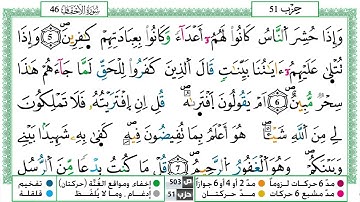 حزب 51
سُورَةُ الأَحْقَافِ 46
وَإِذَا حُشِرَ النَّاسُ كَانُوا لَهُمُۥٓ أَعْدَآءً وَكَانُوا بِعِبَادَتِهِمْ كَٰفِرِينَ 5 وَإِذَا
تُتْلَىٰ عَلَيْهِمُۥٓ ءَايَٰتُنَا بَيِّنَٰتٍ قَالَ الَّذِينَ كَفَرُوا لِلْحَقِّ لَمَّا جَآءَهُمْ هَٰذَا
سِحْرٌ مُّبِينٌ 6 أَمْ يَقُولُونَ افْتَرَىٰهُ قُلِ اِنِ افْتَرَيْتُهُۥ فَلَا تَمْلِكُونَ
لِے مِنَ اللَّهِ شَيْـًٔا هُوَ أَعْلَمُ بِمَا تُفِيضُونَ فِيهِ كَفَىٰ بِهِۦ شَهِيدًۢا بَيْنِے
وَبَيْنَكُمْ وَهُوَ الْغَفُورُ الرَّحِيمُ 7 قُلْ مَا كُنتُ بِدْعًا مِّنَ الرُّسُلِ
مدّ 6 حركات لزوماً مدّ 2 أو 4 أو 6 جوازاً
مدّ مشبع 6 حركات مدّ حركتان
ص 503
حزب 51
إخفاء ومواقع الغُنَّة (حركتان) تفخيم
إدغام، وما لا يُلفَظ قلقلة